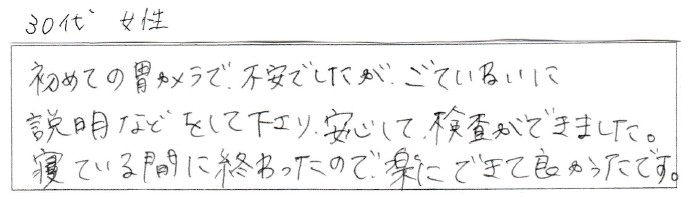 30代 女性
初めての胃カメラで、不安でしたが、ごていねいに
説明などをして下さり、安心して、検査ができました。
寝ている間に終わったので、楽にできて良かったです。